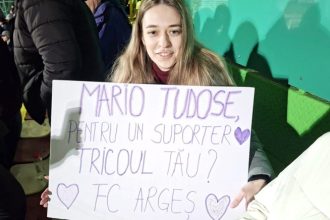 MARIO TUDOSE,
PENTRU UN SUPORTER
TRICOUL TĂU?
FC ARGEȘ